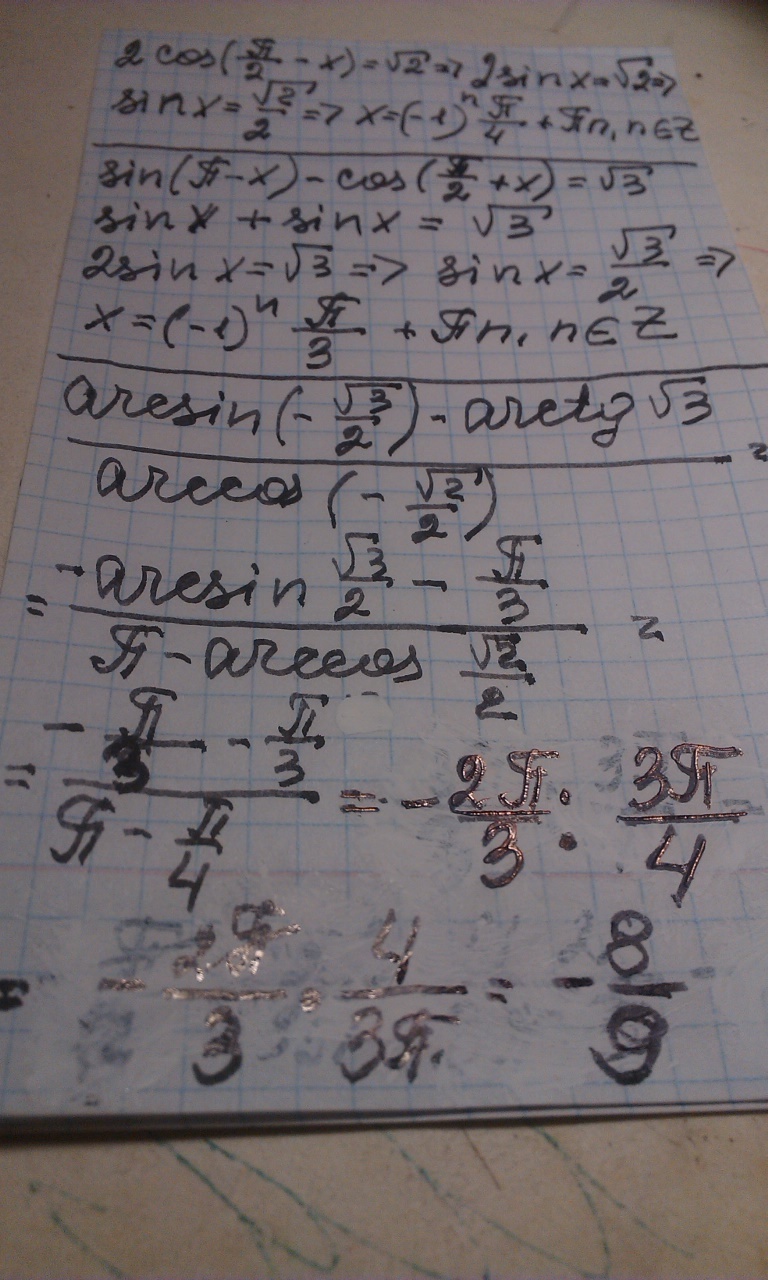 2 cos(π/2 - x) = √2 => 2 sin x = √2 =>
sin x = √2/2 => x = (-1)^n π/4 + πn, n ∈ Z
sin(π - x) - cos(π/2 + x) = √3
sin x + sin x = √3
2 sin x = √3 => sin x = √3/2 =>
x = (-1)^n π/3 + πn, n ∈ Z
(arcsin(-√3/2) - arctg √3) / (arccos(-√2/2)) =
= (-arcsin √3/2 - π/3) / (π - arccos √2/2) =
= (-π/3 - π/3) / (π - π/4) = -2π/3 : 3π/4
= -2π/3 · 4/3π = -8/9